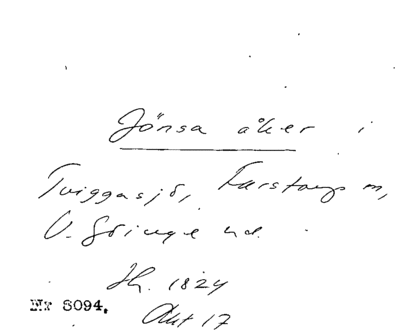 Jönsa åker i
Tviggasjö, Farstorps sn,
V. Göinge hd.
Sk. 1824
Akt 17
Nr 8094.